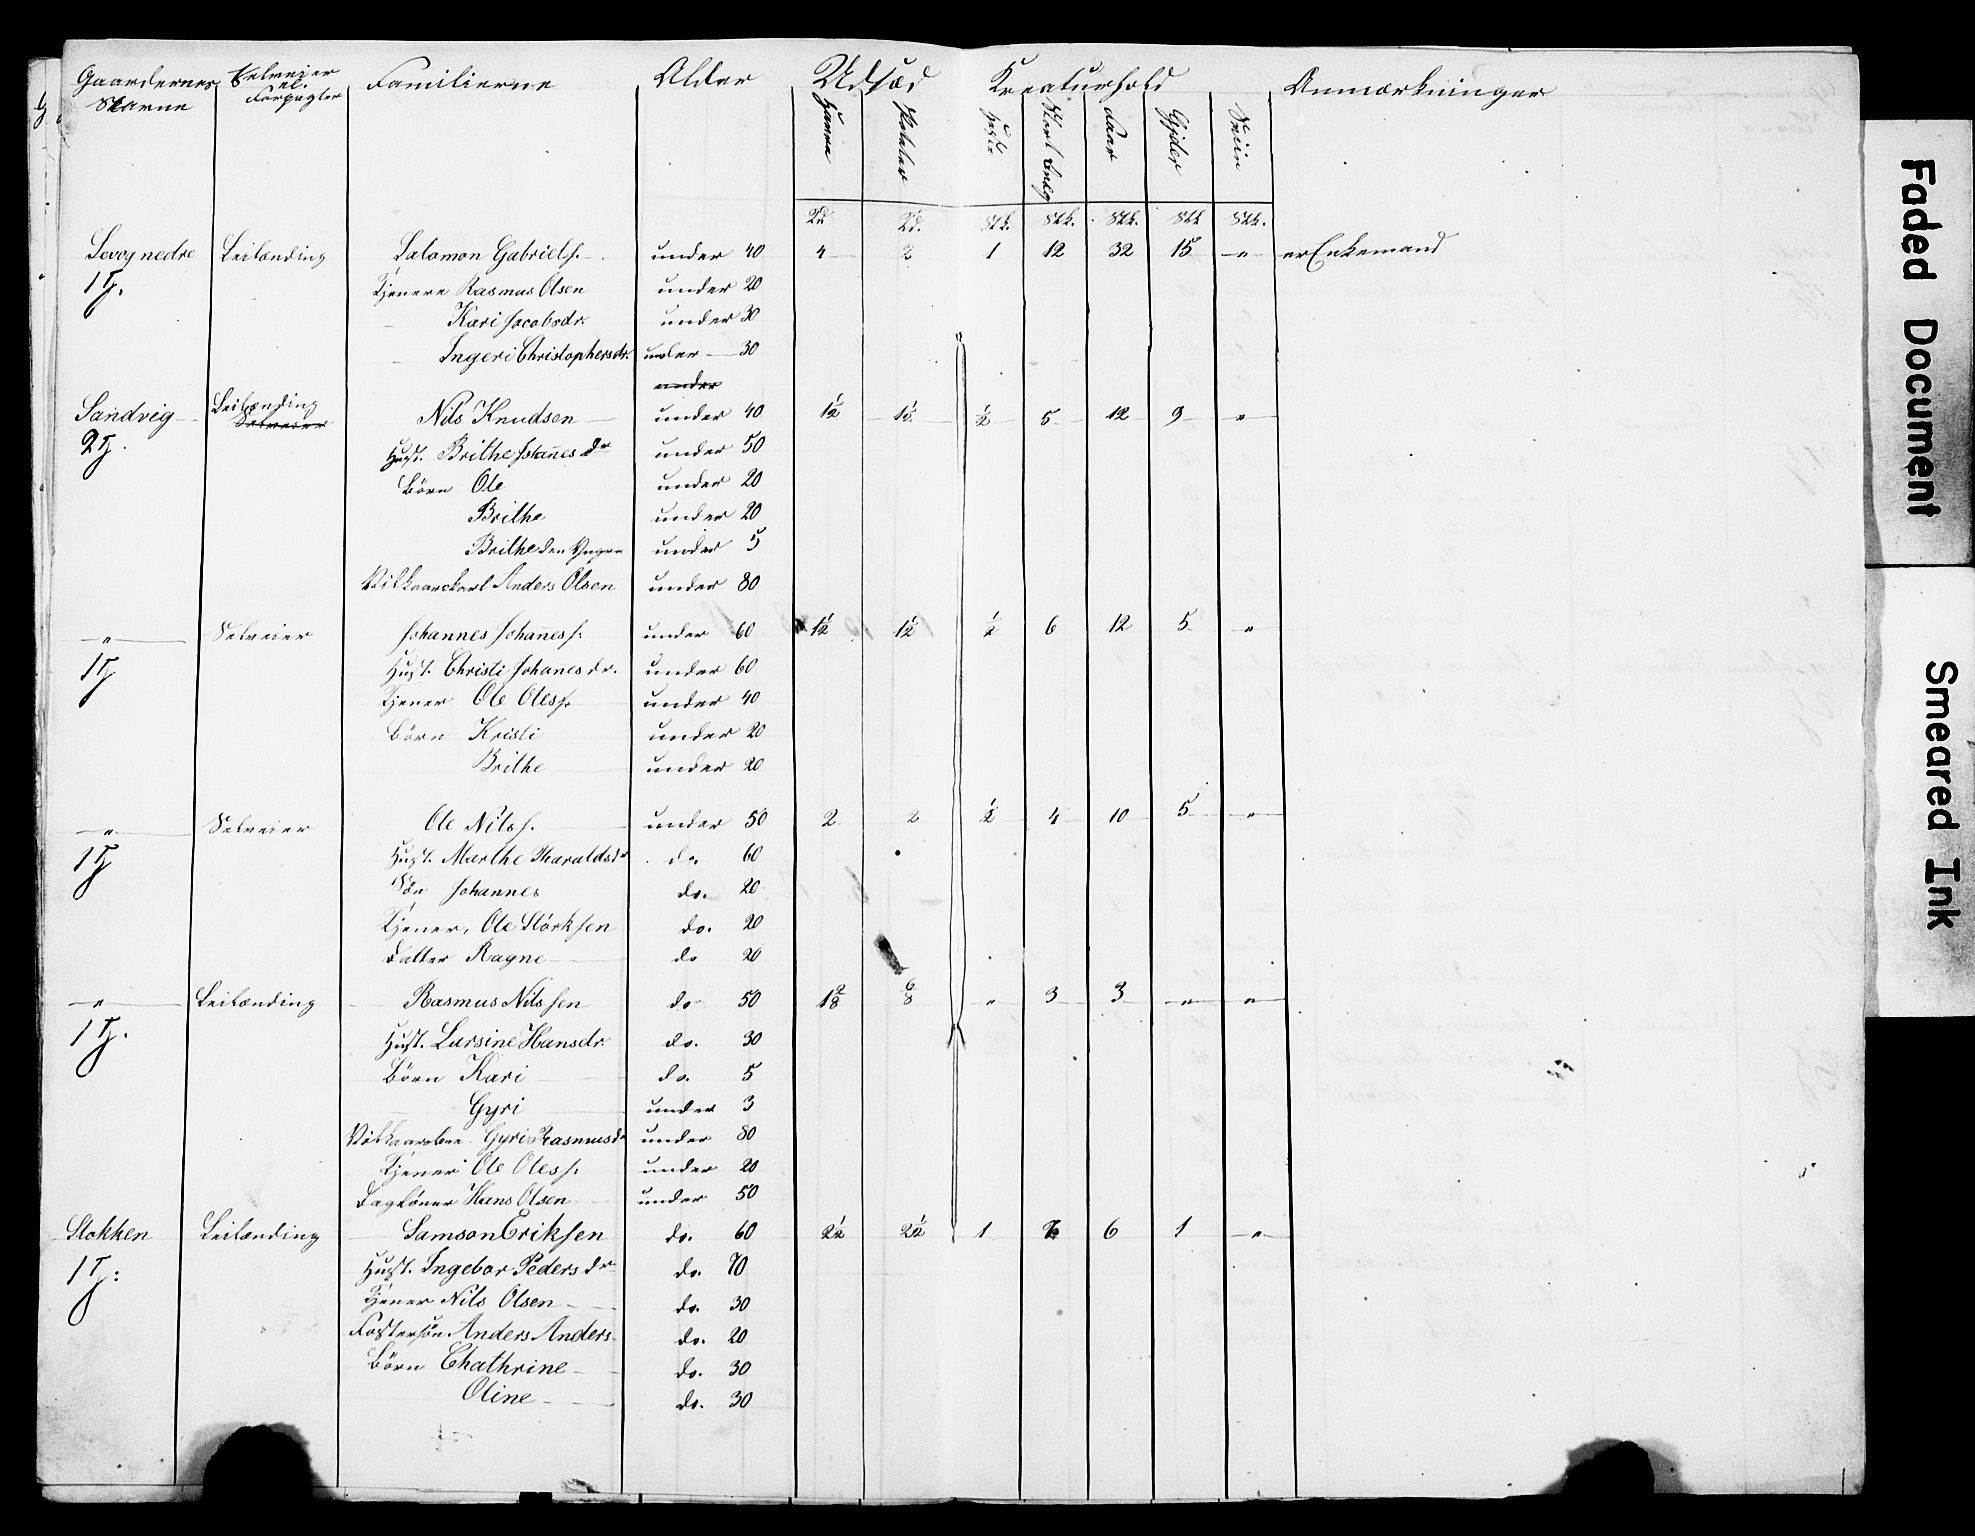 Gaardernes Selveier Familierne Alder Udsæd Kreaturhold Anmærkninger
Navne el. Forpagter Havre Poteter Heste Stort Qvæg Faar Gjeder Sviin
Td Td. Stk. Stk. Stk. Stk Stk.
Sevog nedre Leilænding Salomon Gabriels. under 40 4 3 1 12 32 15 " er Enkemand
1 Tj. Tjenere Rasmus Olsen under 20
Kari Jacobsdr. under 30
Ingeri Christophersdr. under 30
under
Sandvig Leilænding Nils Knudsen under 40 1½ 1½ ½ 5 12 9 "
Selveier
2 Tj. Hust. Brithe Johannes dr under 50
Börn Ole under 20
Brithe under 20
Brithe den Yngre under 5
Vilkaarskarl Anders Olsen under 80
" Selveier Johannes Johaness. under 60 1½ 1½ ½ 6 12 5 "
1 Tj Hust. Christi Johanesdr. under 60
Tjener Ole Oless. under 40
Börn Kristi under 20
Brithe under 20
" Selveier Ole Nilss. under 50 2 2 ½ 4 10 5 "
1 Tj Hust. Marthe Haraldsdr do. 60
Sön Johannes do. 20
Tjener, Ole Störksen do. 20
Datter Ragne do 20
" Leilænding Rasmus Nilssen do 50 1 2/8 6/8 " 3 3 " "
1 Tj. Hust. Larsine Hansdr. do. 30
Börn Kari do. 5
Gyri under 3
Vilkaarskone Gyri Rasmusdr under 80
Tjener Ole Oless. under 20
Daglöner Hans Olsen under 50
Stokken Leilænding Samson Eriksen do. 60 2½ 2½ 1 6 1 "
1 Tj: Hust. Ingebor Peders dr do. 70
Tjener Nils Olsen do. 30
Fostersön Anders Anders. do. 20
Börn Chathrine do. 30
Oline do. 30
Faded Document
Smeared Ink